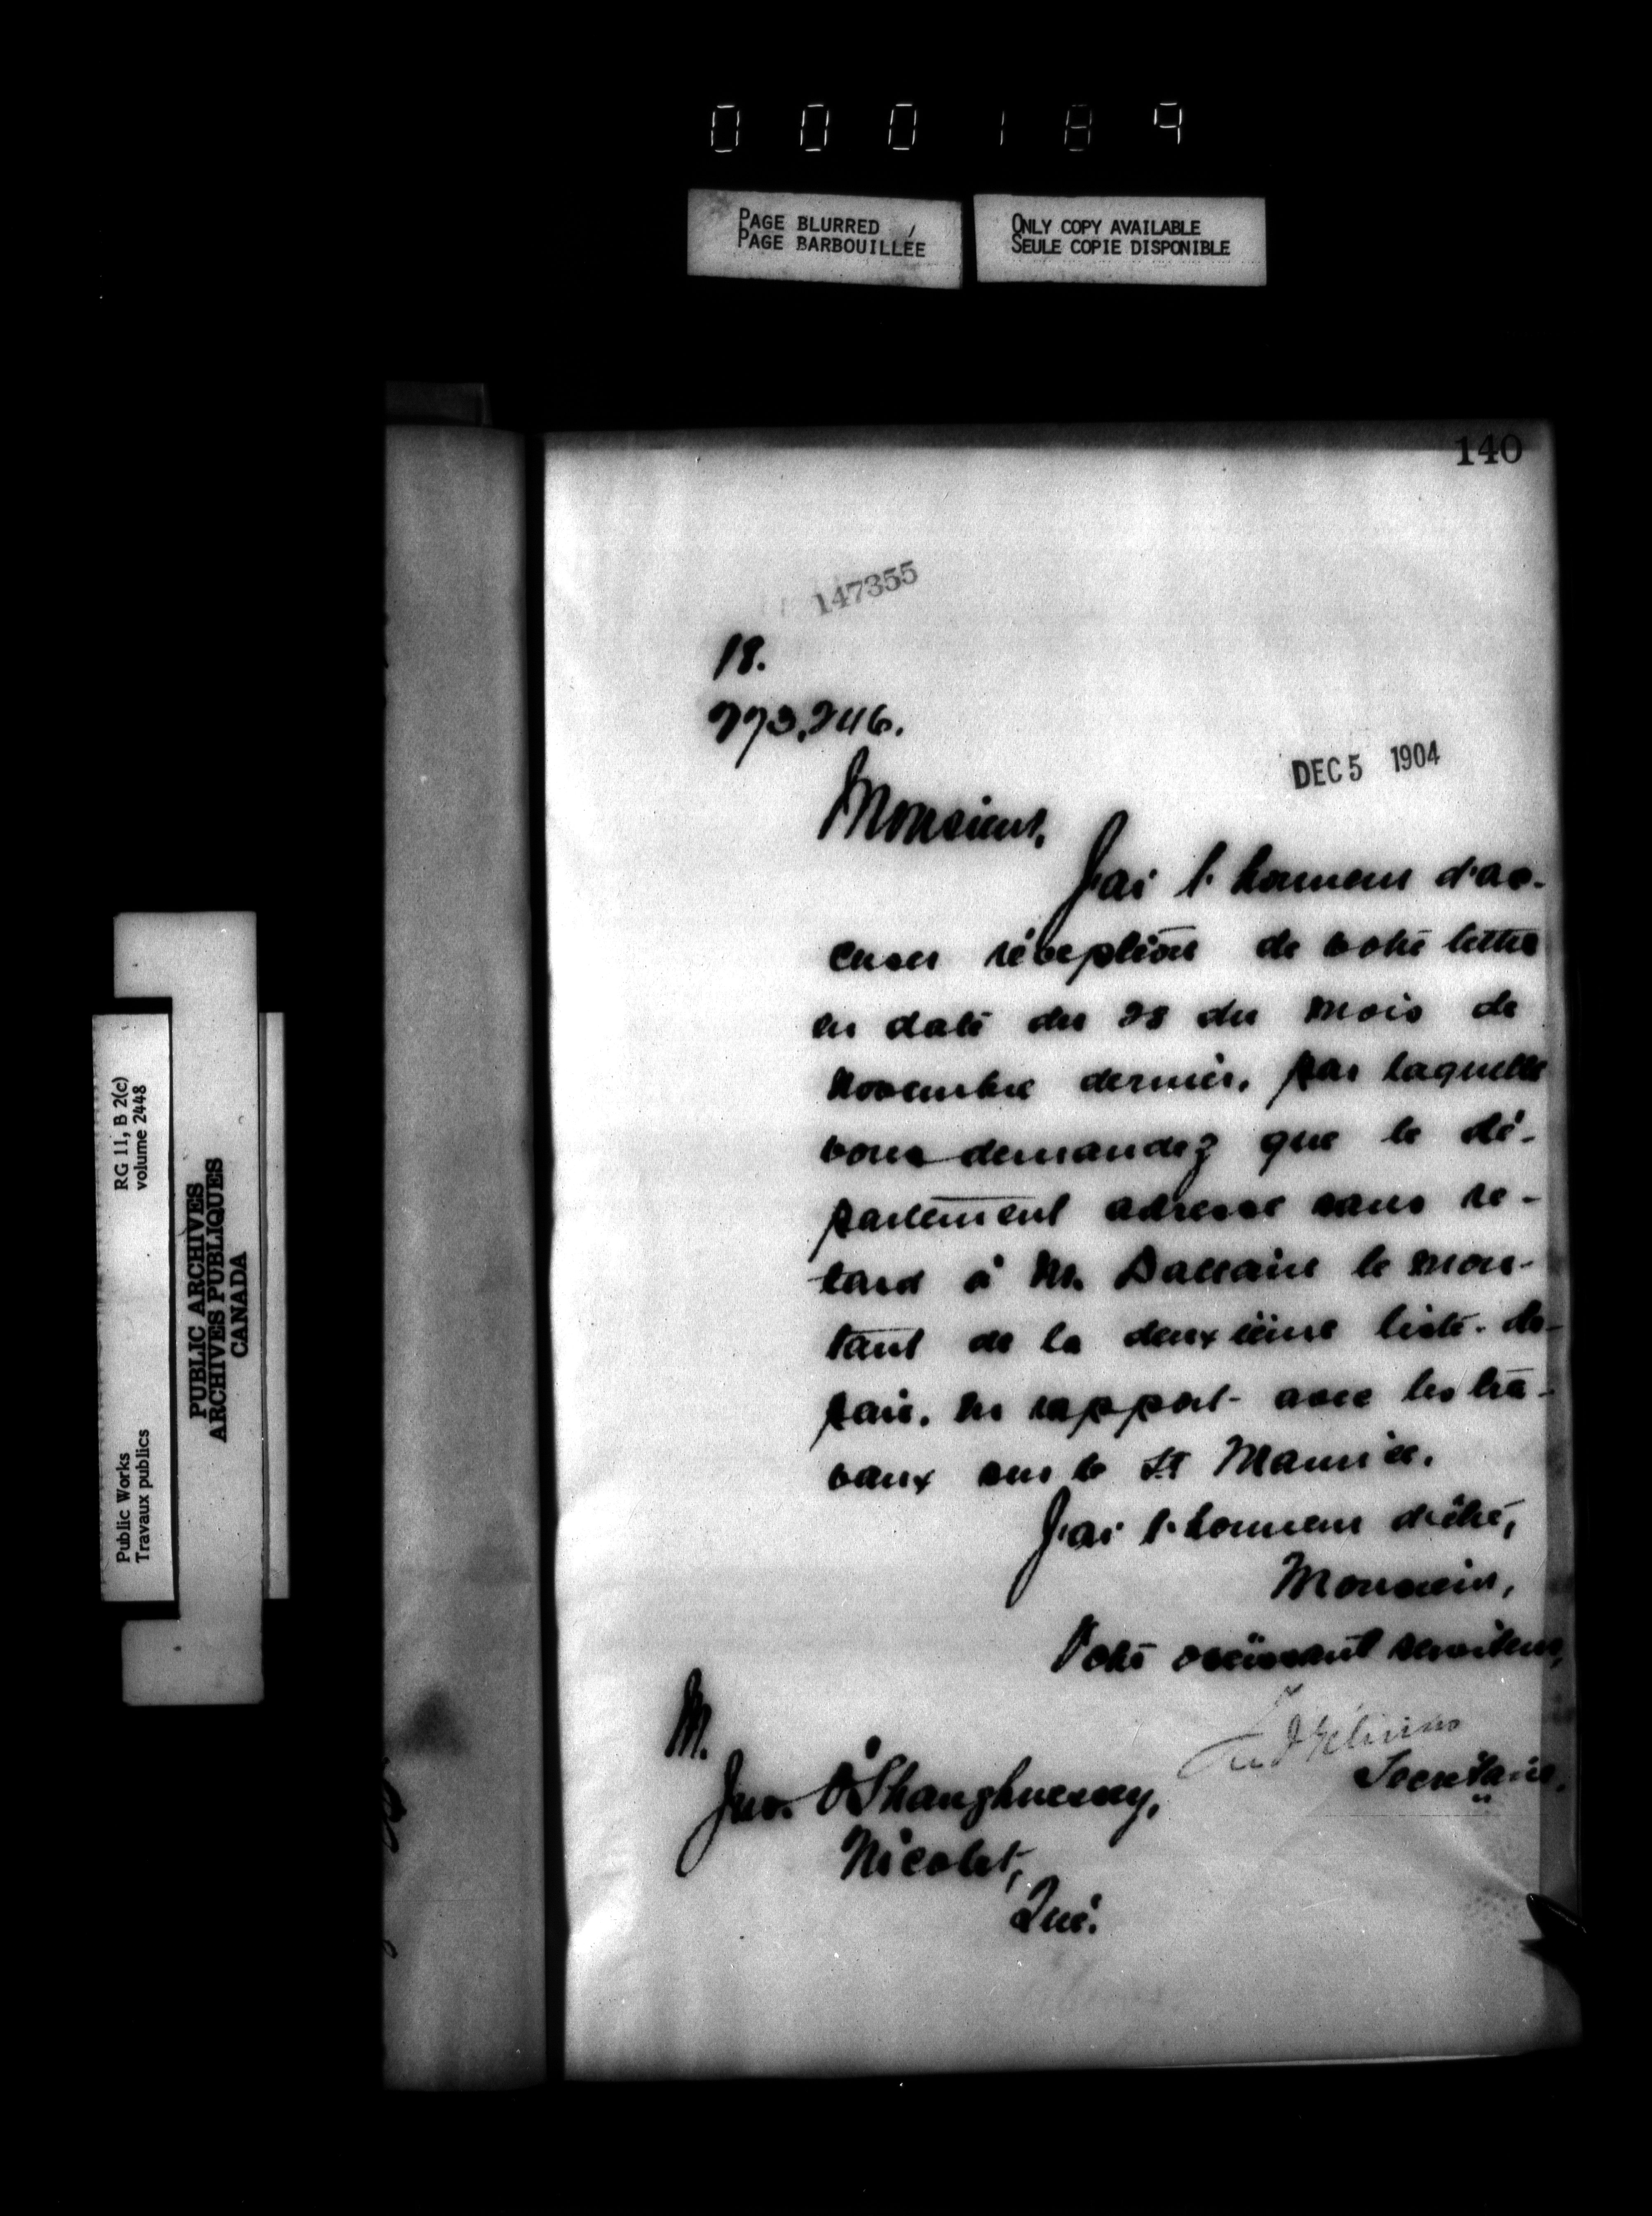 000189
PAGE BLURRED
PAGE BARBOUILLÉE
ONLY COPY AVAILABLE
SEULE COPIE DISPONIBLE
140
147355
18.
273.246.
DEC 5 1904
Monsieur,
J'ai l'honneur d'ac-
cuser réception de votre lettre
en date du 28 du mois de
novembre dernier, par laquelle
vous demandez que le dé-
partement adresse sans re-
tard à M. Dallaire le mon-
tant de la deuxième liste de
paie, en rapport avec les tra-
vaux sur le St Maurice.
J'ai l'honneur d'être,
Monsieur,
Votre obéissant serviteur,
Secrétaire.
M.
Jno. O'Shaughnessy,
Nicolet,
Qué.
RG 11, B 2(c)
volume 2448
Public Works
Travaux publics
PUBLIC ARCHIVES
ARCHIVES PUBLIQUES
CANADA